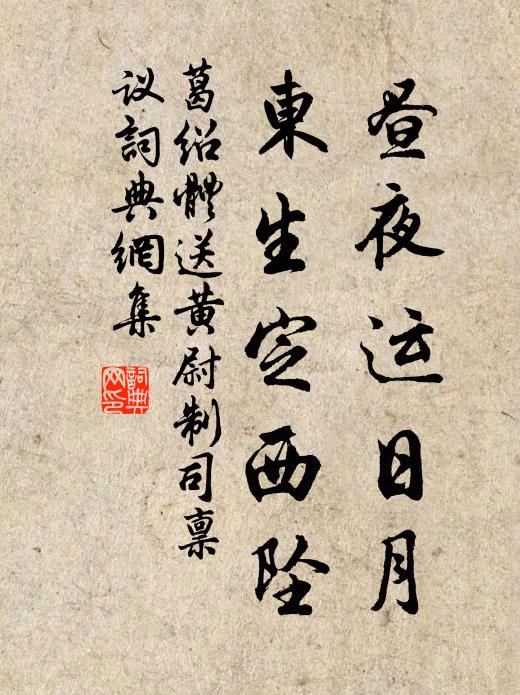 昼夜运日月
東生定西坠
葛绍體送黄尉制司禀
议詞典網集
詞典網印